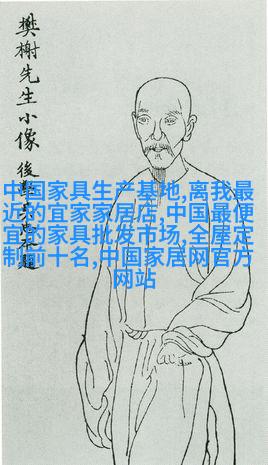 樊榭先生小像
後
中国家具生产基地,离我最
近的宜家家居店,中国最便
宜的家具批发市场,全屋定
制前十名,中国家居网官方
网站